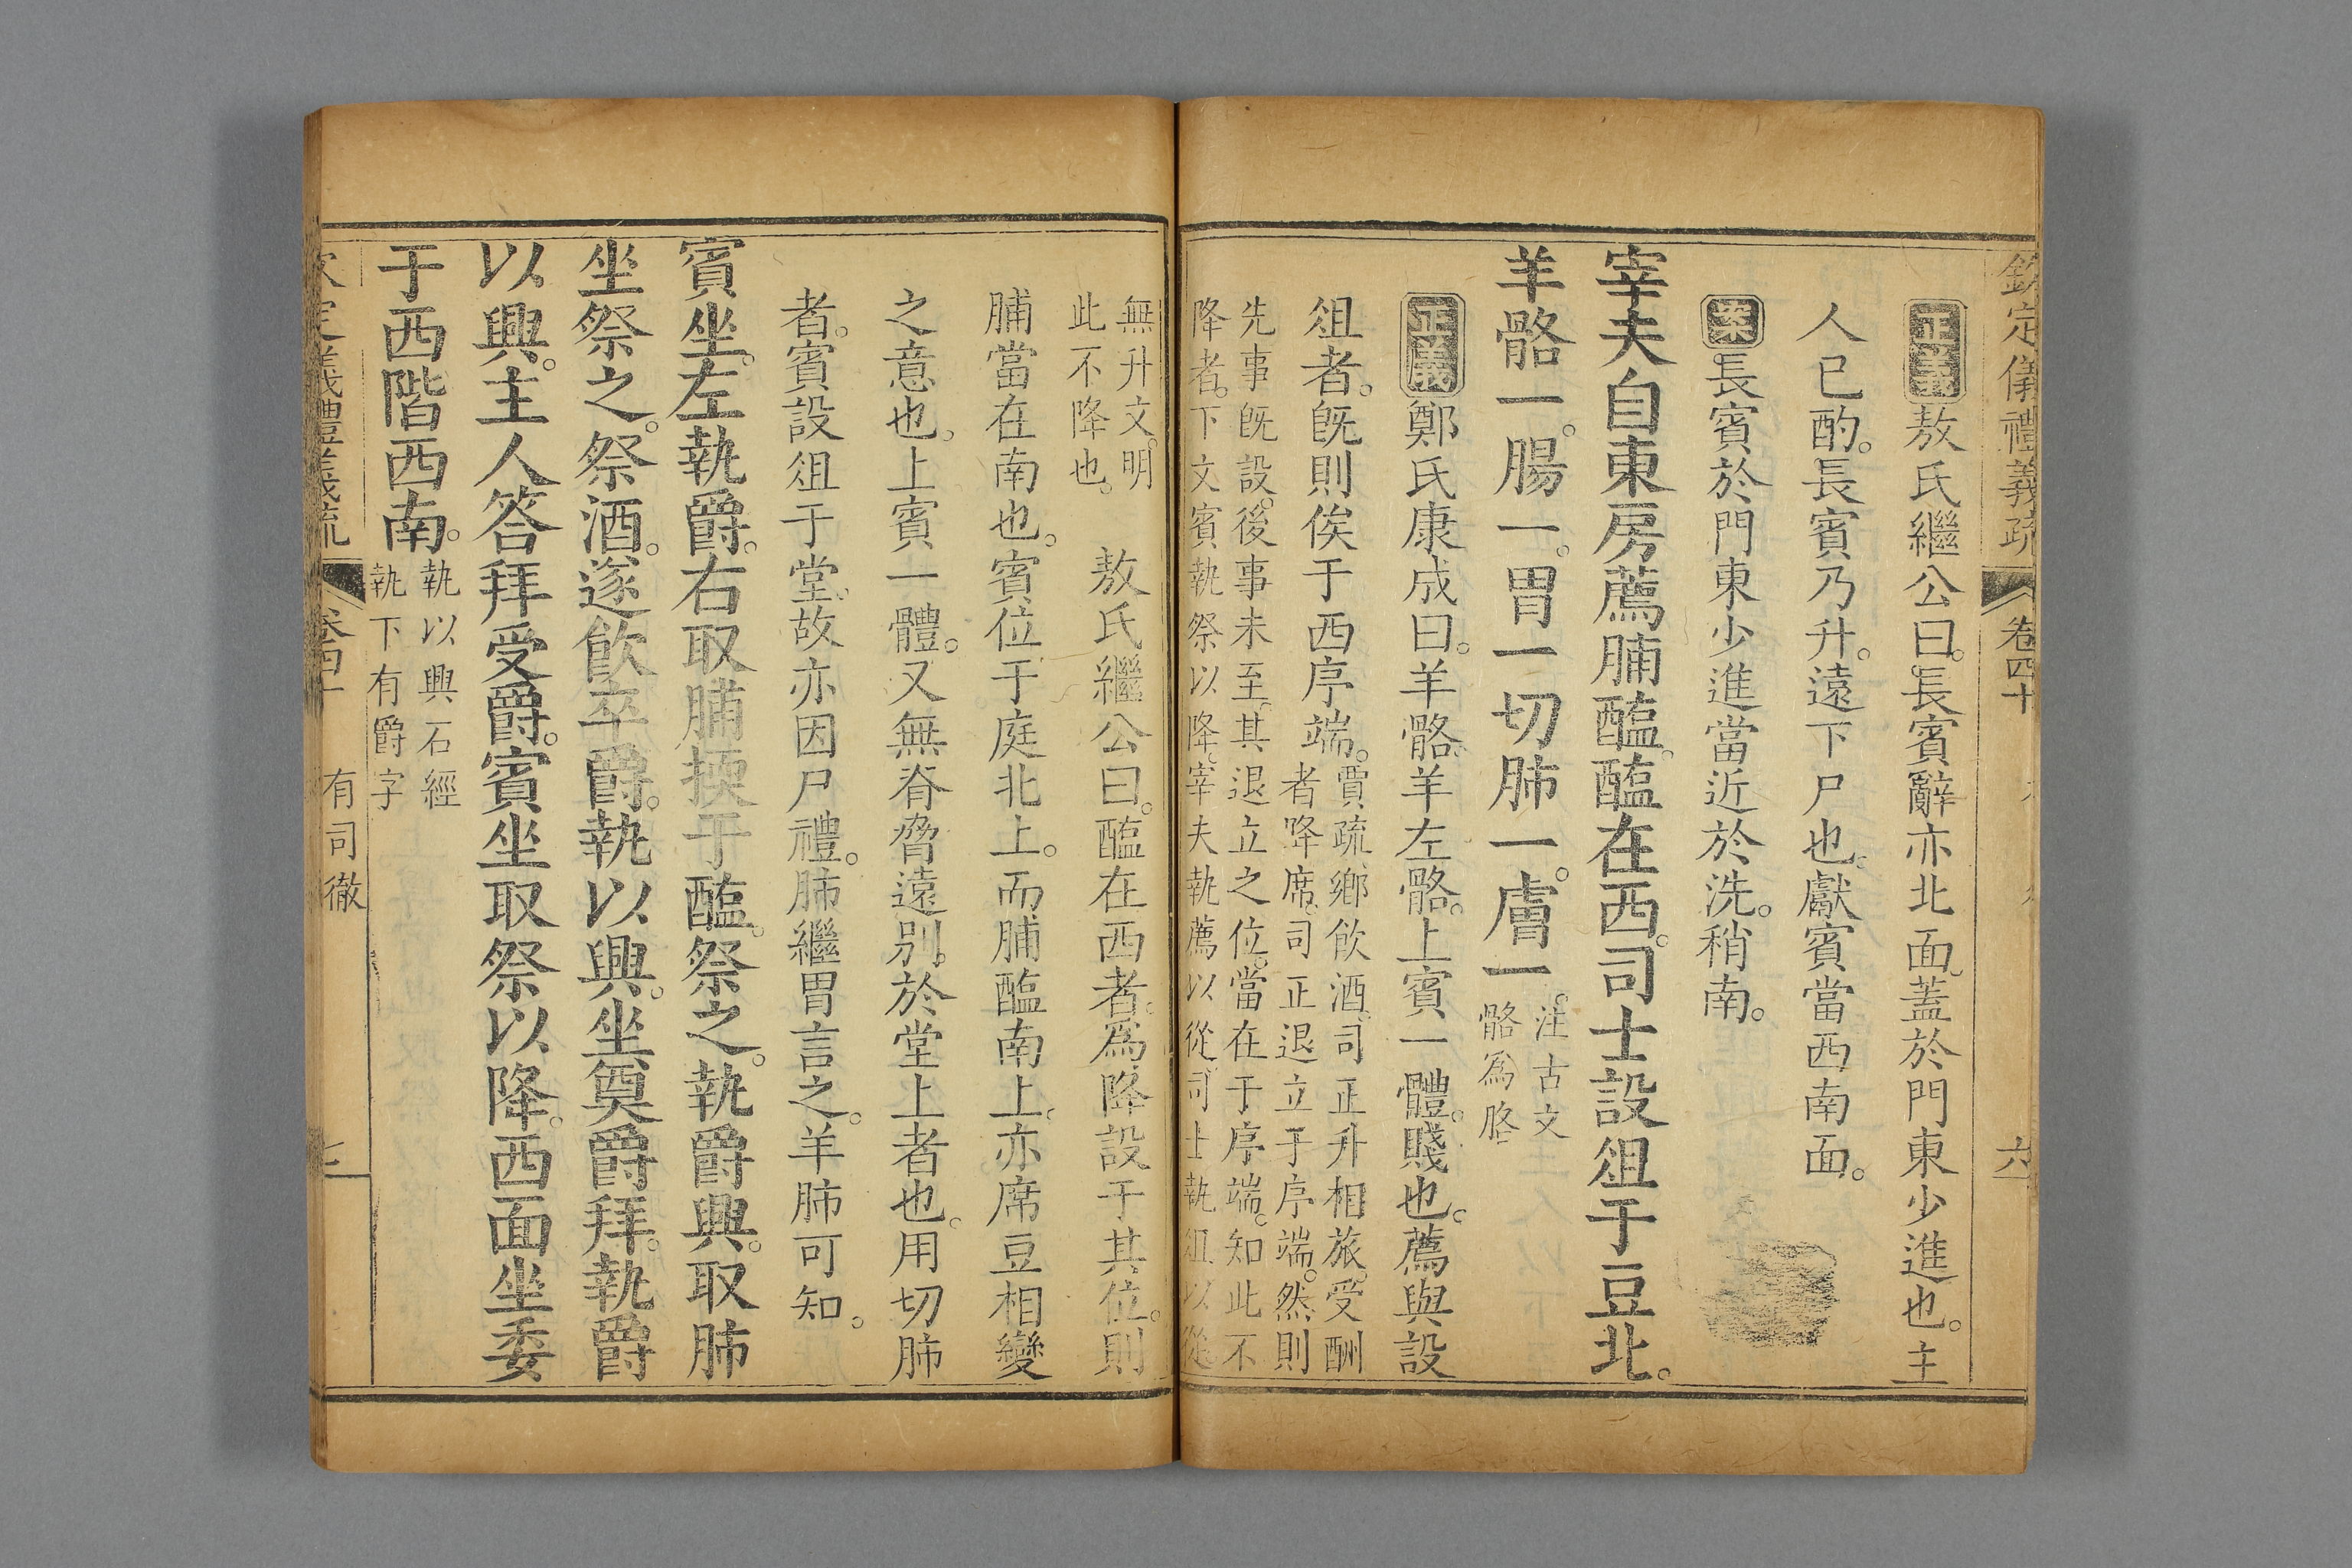 欽定儀禮義疏 卷四十 六
正義敖氏繼公曰。長賓辭亦北面。蓋於門東少進也。主
人已酌。長賓乃升。遠下尸也。獻賓當西南面。
案長賓於門東少進當近於洗。稍南。
宰夫自東房薦脯醢。醢在西。司士設俎于豆北。
羊骼一。腸一。胃一切肺一。膚一。
注古文
骼爲胳
正義鄭氏康成曰。羊骼。羊左骼。上賓一體。賤也。薦與設
俎者。旣則俟于西序端。
賈疏鄉飲酒。司正升相旅。受酬
者降席。司正退立于序端。然則
先事旣設。後事未至。其退立之位。當在于序端。知此不
降者。下文賓執祭以降。宰夫執薦以從。司士執俎以從
無升文。明
此不降也。
敖氏繼公曰。醢在西者。爲降設于其位。則
脯當在南也。賓位于庭北上。而脯醢南上。亦席豆相變
之意也。上賓一體。又無脊脅遠別。於堂上者也。用切肺
者。賓設俎于堂。故亦因尸禮。肺繼胃言之。羊肺可知。
賓坐。左執爵。右取脯㨎于醢。祭之。執爵興。取肺
坐祭之。祭酒。遂飮卒爵。執以興。坐奠爵拜。執爵
以興。主人答拜受爵。賓坐取祭以降。西面坐委
于西階西南。
執以興石經
執下有爵字
欽定儀禮義疏 卷四十 有司徹 七